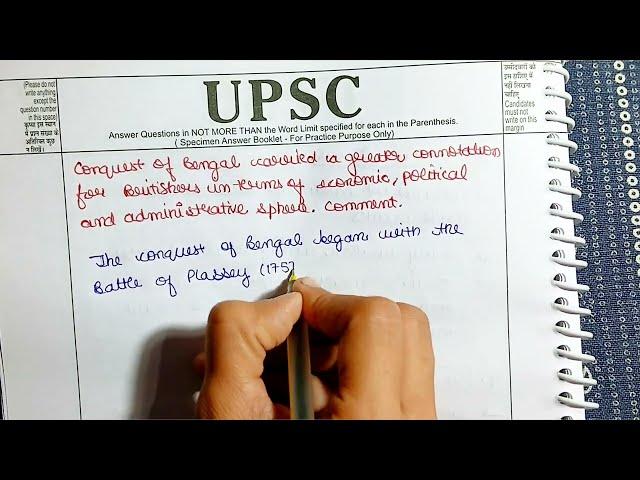 (Please do not
write anything
except the
question number
in this space
कृपया इस स्थान
में प्रश्न संख्या के
अतिरिक्त कुछ
न लिखें)
UPSC
Answer Questions in NOT MORE THAN the Word Limit specified for each in the Parenthesis.
( Specimen Answer Booklet - For Practice Purpose Only)
उम्मीदवारों को
इस हाशिए में
नहीं लिखना
चाहिए
Candidates
must not
write on this
margin
Conquest of Bengal carried a greater connotation
for Britishers in terms of economic, political
and administrative sphere. comment.
The conquest of Bengal began with the
Battle of Plassey (175